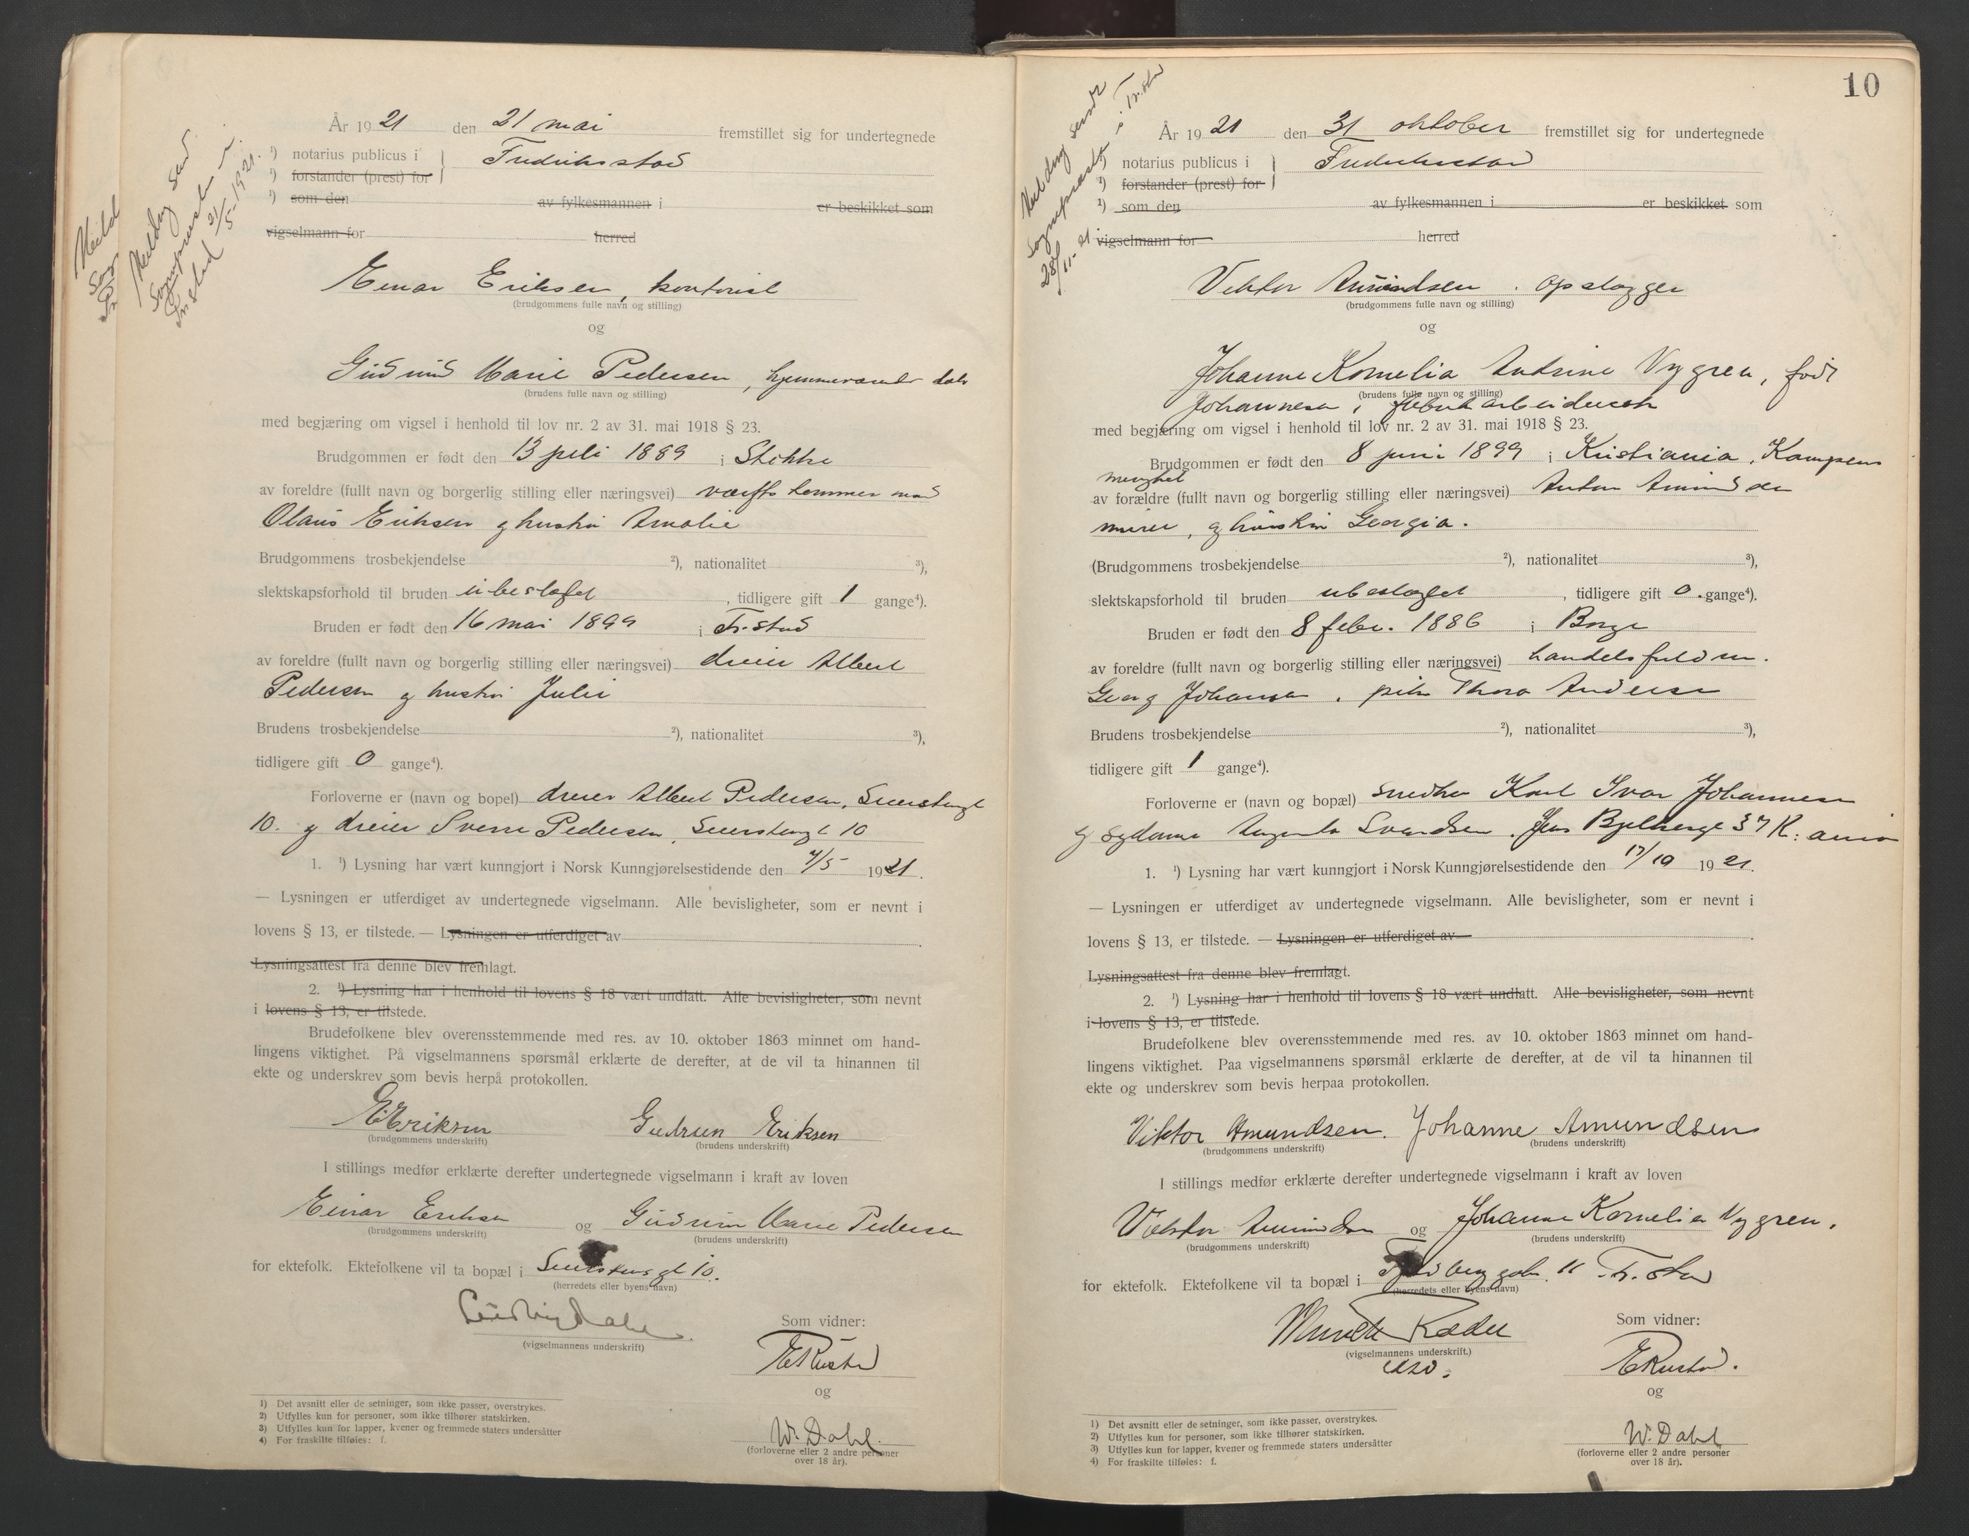 År 1921 den 21 mai fremstillet sig for undertegnede
¹) notarius publicus i Fredriksstad
¹) forstander (prest) for
¹) som den av fylkesmannen i er beskikket som
vigselmann for herred
Einar Eriksen, kontorist
(brudgommens fulle navn og stilling)
og
Gudrun Marie Pedersen, hjemmeværende datr
(brudens fulle navn og stilling)
med begjæring om vigsel i henhold til lov nr. 2 av 31. mai 1918 § 23.
Brudgommen er født den 13 juli 1889 i
av foreldre (fullt navn og borgerlig stilling eller næringsvei) værftstømmermand
Olaus Eriksen og hustru Amalie
Brudgommens trosbekjendelse ²), nationalitet ³),
slektskapsforhold til bruden ubeslægtet, tidligere gift 1 gange⁴).
Bruden er født den 16 mai 1899 i Fr.stad
av foreldre (fullt navn og borgerlig stilling eller næringsvei) dreier Albert
Pedersen og hustru Julie
Brudens trosbekjendelse ²), nationalitet ³),
tidligere gift 0 gange⁴).
Forloverne er (navn og bopel) dreier Albert Pedersen,
10. og dreier Sverre Pedersen, 10
1. ¹) Lysning har vært kunngjort i Norsk Kunngjørelsestidende den 4/5 1921.
— Lysningen er utferdiget av undertegnede vigselmann. Alle bevisligheter, som er nevnt i
lovens § 13, er tilstede. — Lysningen er utferdiget av
Lysningsattest fra denne blev fremlagt.
2. ¹) Lysning har i henhold til lovens § 18 vært undlatt. Alle bevisligheter, som nevnt
i lovens § 13, er tilstede.
Brudefolkene blev overensstemmende med res. av 10. oktober 1863 minnet om hand-
lingens viktighet. På vigselmannens spørsmål erklærte de derefter, at de vil ta hinannen til
ekte og underskrev som bevis herpå protokollen.
E. Eriksen Gudrun Eriksen
(brudgommens underskrift) (brudens underskrift)
I stillings medfør erklærte derefter undertegnede vigselmann i kraft av loven
Einar Eriksen og Gudrun Marie Pedersen
(brudgommens underskrift) (brudens underskrift)
for ektefolk. Ektefolkene vil ta bopæl i 10.
(herredets eller byens navn)
Som vidner:
(vigselmannens underskrift)
E Rustad
og
W. Dahl.
(forloverne eller 2 andre personer
over 18 år).
1) Det avsnitt eller de setninger, som ikke passer, overstrykes.
2) Utfylles kun for personer, som ikke tilhører statskirken.
3) Utfylles kun for lapper, kvener og fremmede staters undersåtter
4) For fraskilte tilføies: f.
Melding sendt
Sognepresten i
Fr.stad 21/5-1921.
10
Melding sendt
Sognepresten i Fr.stad
28/11-21
År 1921 den 31 oktober fremstillet sig for undertegnede
¹) notarius publicus i Fredriksstad
¹) forstander (prest) for
¹) som den av fylkesmannen i er beskikket som
vigselmann for herred
Viktor Amundsen. opslagger
(brudgommens fulle navn og stilling)
og
Johanne Kornelia Andrine Nygren, født
(brudens fulle navn og stilling)
Johannesen, fabrikarbeiderske
med begjæring om vigsel i henhold til lov nr. 2 av 31. mai 1918 § 23.
Brudgommen er født den 8 juni 1899 i Kristiania, Kampens
menighet
av forældre (fullt navn og borgerlig stilling eller næringsvei) Anton Amundsen
murer, og hustru Georgia.
(Brudgommens trosbekjendelse ²), nationalitet ³),
slektskapsforhold til bruden ubeslægtet, tidligere gift 0. gange⁴).
Bruden er født den 8 febr. 1886 i Borge
av foreldre (fullt navn og borgerlig stilling eller næringsvei) handelsfuldm.
Georg Johansen. pike Thora Andersen
Brudens trosbekjendelse ²), nationalitet ³),
tidligere gift 1 gange⁴).
Forloverne er (navn og bopæl) snedker Karl Ivar Johannesen
og Svendsen. Jens Bjelkesgt 37 K:ania
1. ¹) Lysning har vært kunngjort i Norsk Kunngjørelsestidende den 17/10 1921.
— Lysningen er utferdiget av undertegnede vigselmann. Alle bevisligheter, som er nevnt i
lovens § 13, er tilstede. — Lysningen er utferdiget av
Lysningsattest fra denne blev fremlagt.
2. ¹) Lysning har i henhold til lovens § 18 vært undlatt. Alle bevisligheter, som nevnt
i lovens § 13, er tilstede.
Brudefolkene blev overensstemmende med res. av 10. oktober 1863 minnet om hand-
lingens viktighet. Paa vigselmannens spørsmål erklærte de derefter, at de vil ta hinannen til
ekte og underskrev som bevis herpaa protokollen.
Viktor Amundsen. Johanne Amundsen
(brudgommens underskrift) (brudens underskrift)
I stillings medfør erklærte derefter undertegnede vigselmann i kraft av loven
Viktor Amundsen og Johanne Kornelia Nygren.
(brudgommens underskrift) (brudens underskrift)
for ektefolk. Ektefolkene vil ta bopæl i 11 Fr.stad
(herredets eller byens navn)
Som vidner:
(vigselmannens underskrift.)
E Rustad.
og
W. Dahl
(forloverne eller 2 andre personer
over 18 år).
1) Det avsnitt eller de setninger, som ikke passer, overstrykes.
2) Utfylles kun for personer, som ikke tilhører statskirken.
3) Utfylles kun for lapper, kvener og fremmede staters undersåtter
4) For fraskilte tilføies: f.